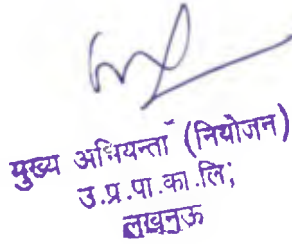 मुख्य अभियन्ता (नियोजन)
उ.प्र.पा.का.लि;
लखनऊ